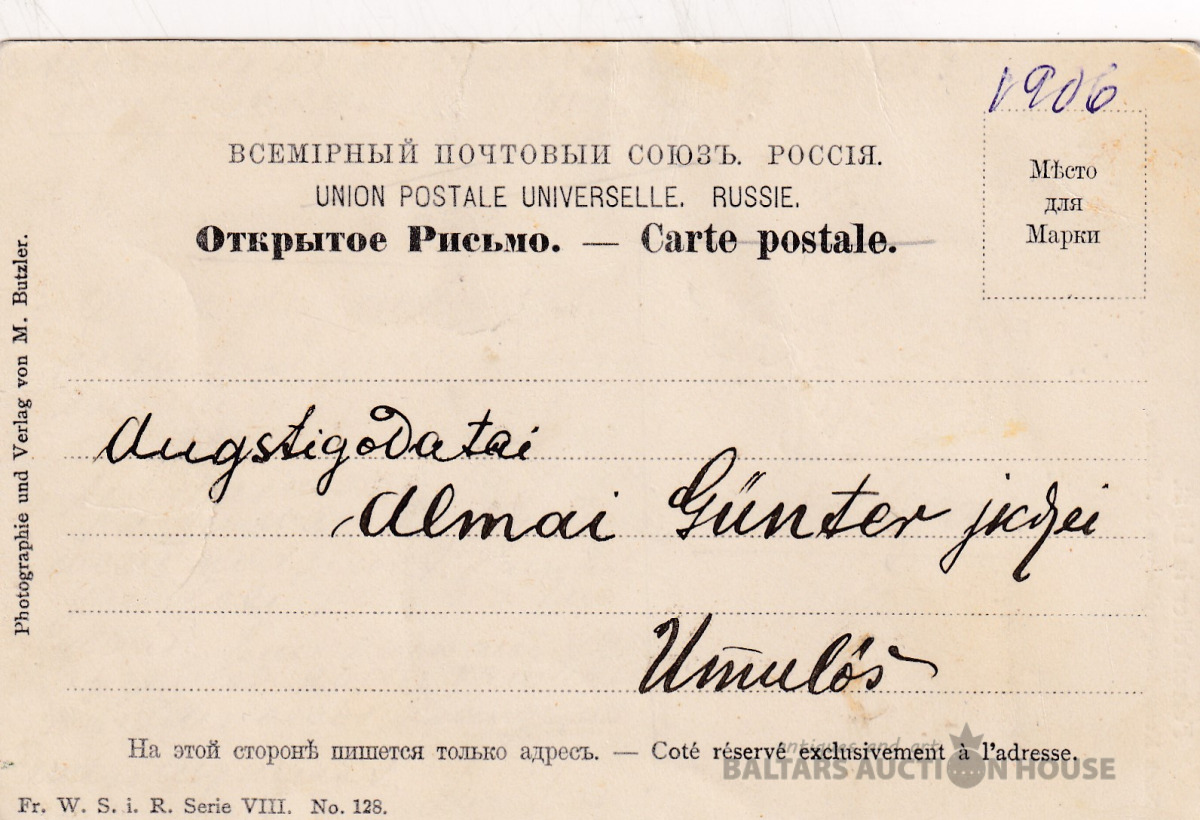 1906
ВСЕМІРНЫЙ ПОЧТОВЫИ СОЮЗЪ. РОССІЯ.
UNION POSTALE UNIVERSELLE. RUSSIE.
Открытое Рисьмо. — Carte postale.
Мѣсто
для
Марки
Photographie und Verlag von M. Butzler.
Augstigodatai
Almai Günter jkdzei
На этой сторонѣ пишется только адресъ. — Coté réservé exclusivement à l'adresse.
antiques and art
BALTARS AUCTION HOUSE
Fr. W. S. i. R. Serie VIII. No. 128.